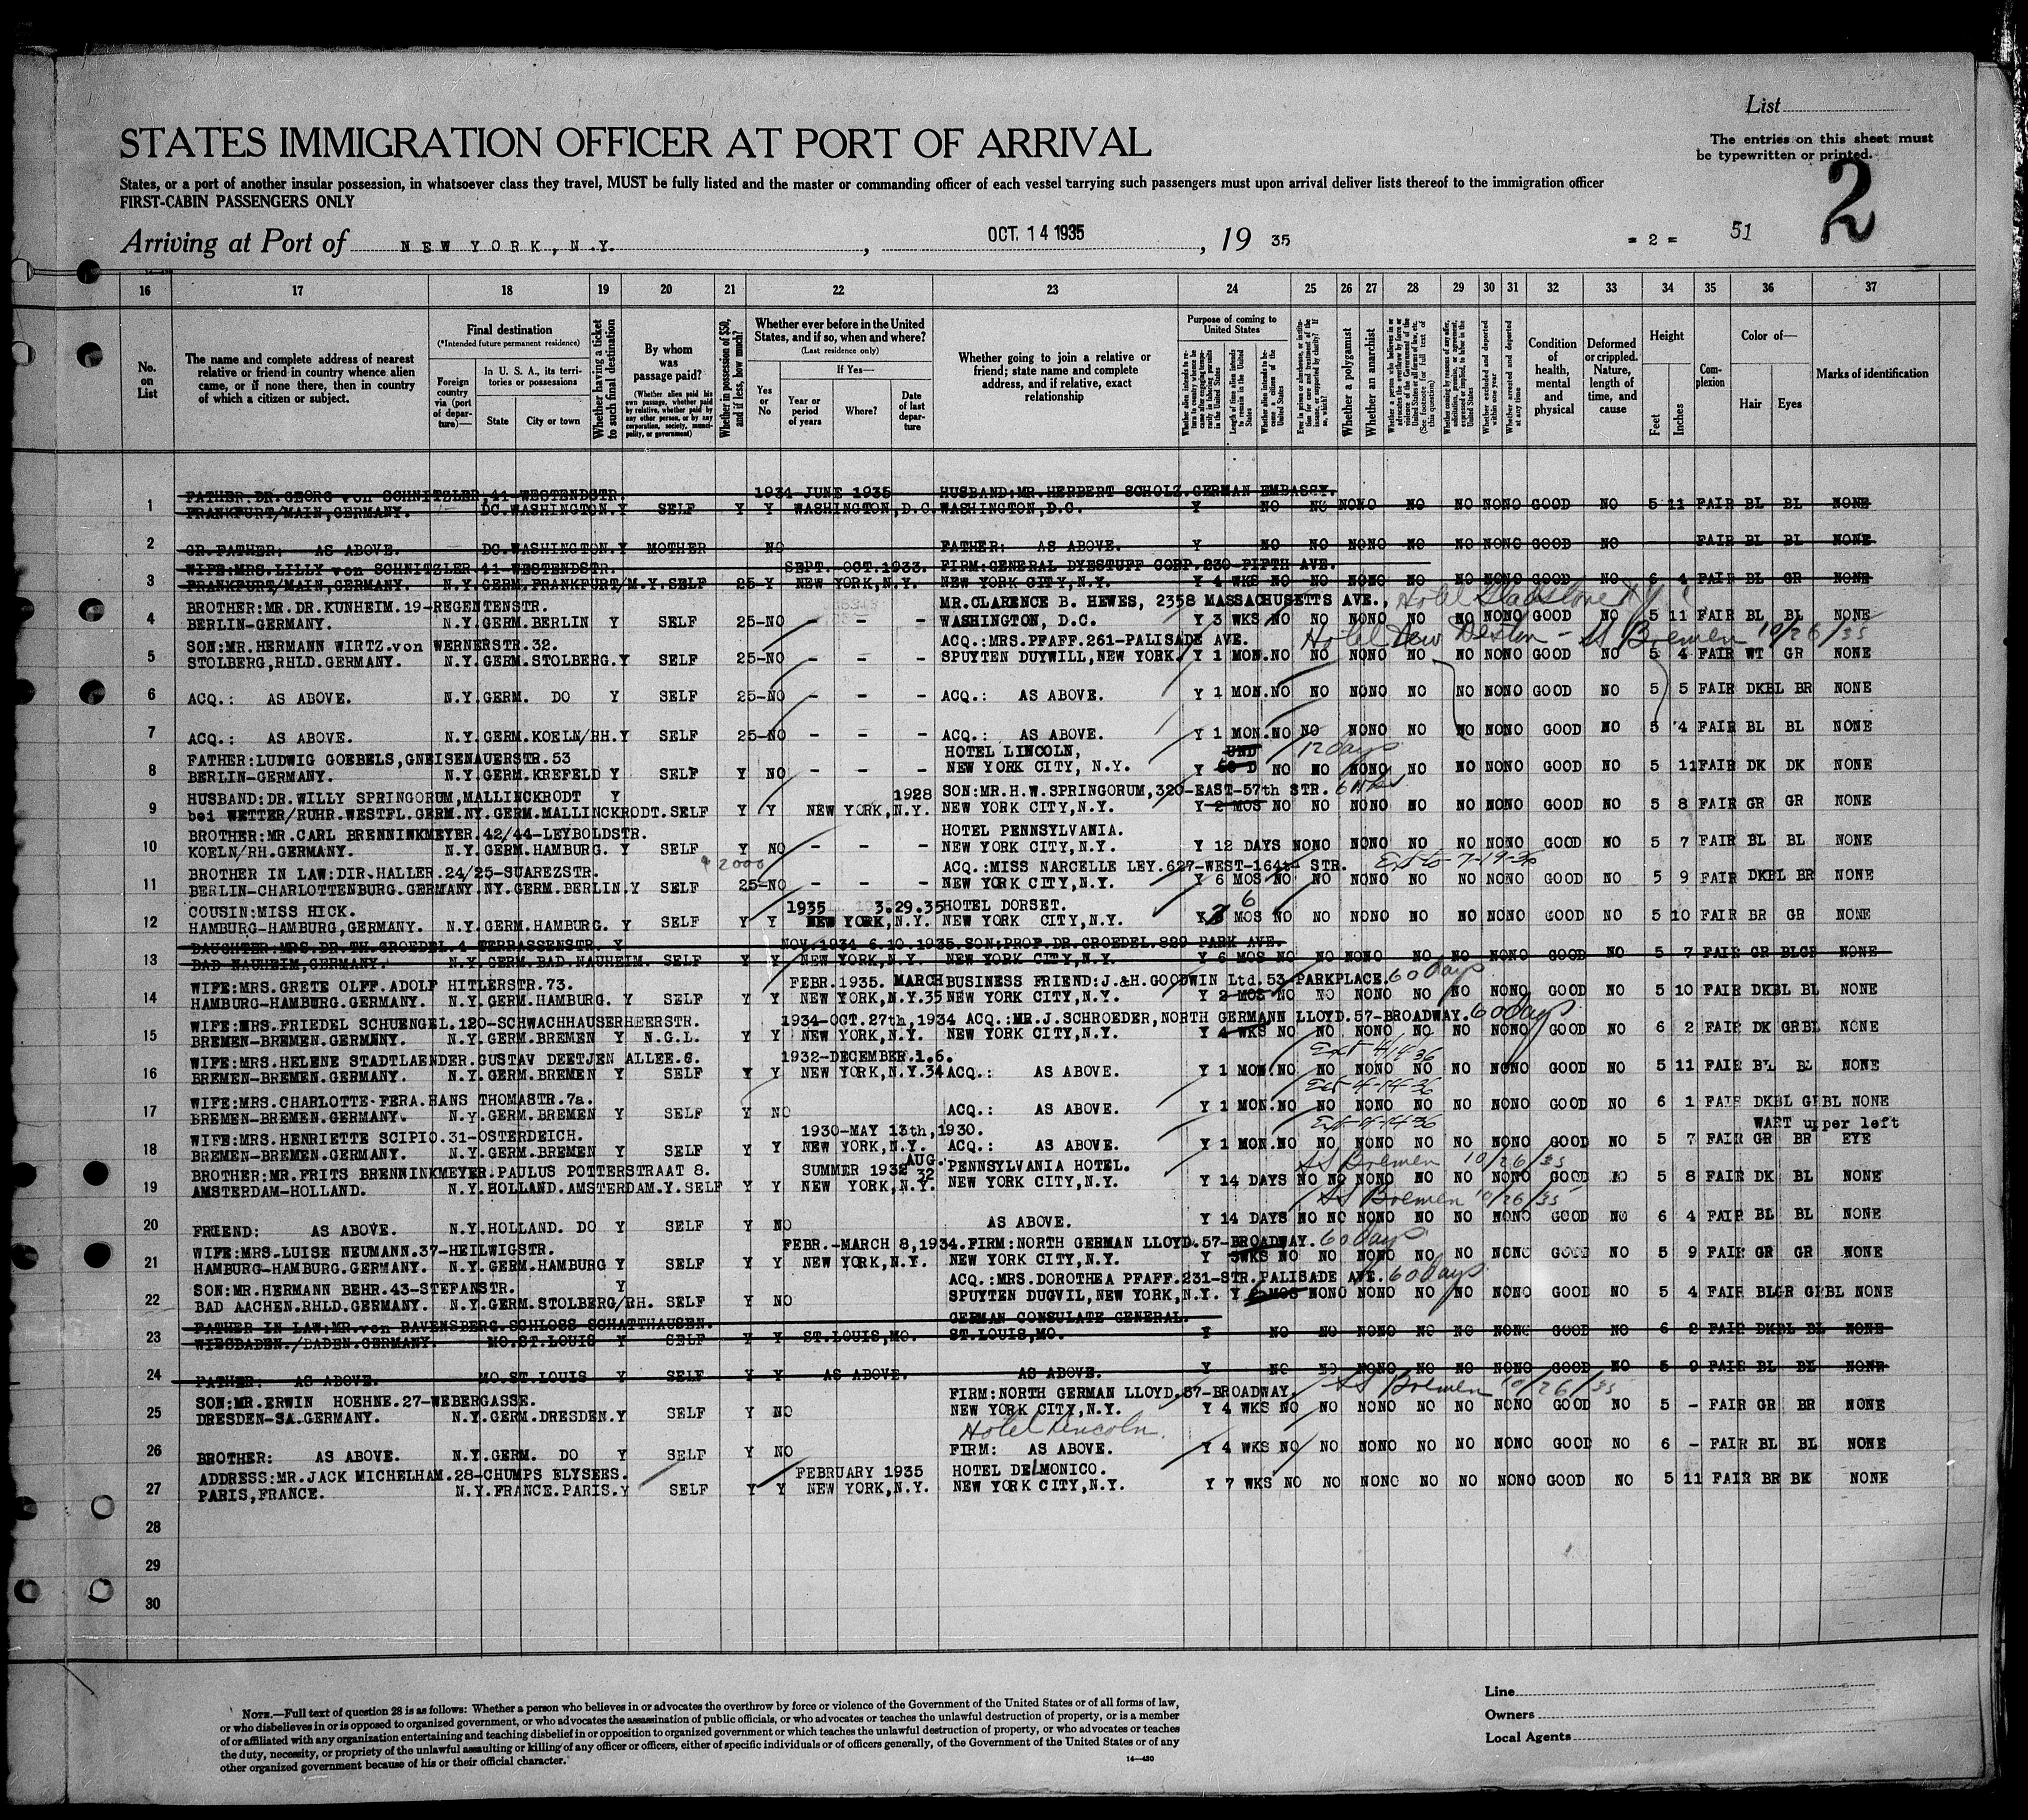 List
STATES IMMIGRATION OFFICER AT PORT OF ARRIVAL
The entries on this sheet must
be typewritten or printed.
States, or a port of another insular possession, in whatsoever class they travel, MUST be fully listed and the master or commanding officer of each vessel carrying such passengers must upon arrival deliver lists thereof to the immigration officer
FIRST-CABIN PASSENGERS ONLY
2
Arriving at Port of NEW YORK, N.Y. , OCT. 14 1935 , 19 35 = 2 = 51
16 17 18 19 20 21 22 23 24 25 26 27 28 29 30 31 32 33 34 35 36 37
No. on List
The name and complete address of nearest relative or friend in country whence alien came, or if none there, then in country of which a citizen or subject.
Final destination
(*Intended future permanent residence)
Foreign country via (port of departure)—
In U. S. A., its territories or possessions
State
City or town
Whether having a ticket to such final destination
By whom was passage paid?
(Whether alien paid his own passage, whether paid by relative, whether paid by any other person, or by any corporation, society, municipality, or government)
Whether in possession of $50, and if less, how much?
Whether ever before in the United States, and if so, when and where?
(Last residence only)
Yes or No
If Yes—
Year or period of years
Where?
Date of last departure
Whether going to join a relative or friend; state name and complete address, and if relative, exact relationship
Purpose of coming to United States
Length of time alien intends to remain in the United States
Whether alien intends to become a citizen of the United States
Whether a polygamist
Whether an anarchist
(See footnote for full text of this question)
Whether excluded and deported within one year
Whether arrested and deported at any time
Condition of health, mental and physical
Deformed or crippled. Nature, length of time, and cause
Height
Feet
Inches
Complexion
Color of—
Hair
Eyes
Marks of identification
FATHER:DR.GEORG von SCHNITZLER,41-WESTENDSTR. 1934 JUNE 1935 HUSBAND:MR.HERBERT SCHOLZ.GERMAN EMBASSY.
1 FRANKFURT/MAIN,GERMANY. DC.WASHINGTON.Y SELF Y Y WASHINGTON,D.C. WASHINGTON,D.C. Y NO NO NONO NO NO NONO GOOD NO 5 11 FAIR BL BL NONE
2 GR.FATHER: AS ABOVE. DC.WASHINGTON.Y MOTHER NO FATHER: AS ABOVE. Y NO NO NONO NO NO NONO GOOD NO FAIR BL BL NONE
WIFE:MRS.LILLY von SCHNITZLER 41-WESTENDSTR. SEPT. OCT.1933. FIRM:GENERAL DYESTUFF CORP.230 FIFTH AVE.
3 FRANKFURT/MAIN,GERMANY. N.Y.GERM.FRANKFURT/M.Y.SELF 25-Y NEW YORK,N.Y. NEW YORK CITY,N.Y. Y 4 WKS NO NO NONO NO NO NONO GOOD NO 6 4 FAIR BL GR NONE
BROTHER:MR.DR.KUNHEIM.19-REGENTENSTR. MR.CLARENCE B. HEWES, 2358 MASSACHUSETTS AVE., Hotel Gladstone
4 BERLIN-GERMANY. N.Y.GERM.BERLIN Y SELF 25-NO - - - WASHINGTON, D.C. Y 3 WKS NO NO NONO NO NO NONO GOOD NO 5 11 FAIR BL BL NONE
SON:MR.HERMANN WIRTZ.von WERNERSTR.32. ACQ.:MRS.PFAFF.261-PALISADE AVE. Hotel New Weston - SS Bremen 10/26/35
5 STOLBERG,RHLD.GERMANY. N.Y.GERM.STOLBERG.Y SELF 25-NO - - - SPUYTEN DUYWILL,NEW YORK. Y 1 MON.NO NO NONO NO NO NONO GOOD NO 5 4 FAIR WT GR NONE
6 ACQ.: AS ABOVE. N.Y.GERM. DO Y SELF 25-NO - - - ACQ.: AS ABOVE. Y 1 MON.NO NO NONO NO NO NONO GOOD NO 5 5 FAIR DKBL BR NONE
7 ACQ.: AS ABOVE. N.Y.GERM.KOELN/RH.Y SELF 25-NO - - - ACQ.: AS ABOVE. Y 1 MON.NO NO NONO NO NO NONO GOOD NO 5 4 FAIR BL BL NONE
FATHER:LUDWIG GOEBELS,GNEISENAUERSTR.53 HOTEL LINCOLN, 12 days
8 BERLIN-GERMANY. N.Y.GERM.KREFELD Y SELF Y NO - - - NEW YORK CITY, N.Y. Y 60 D NO NO NONO NO NO NONO GOOD NO 5 11 FAIR DK DK NONE
HUSBAND:DR.WILLY SPRINGORUM,MALLINCKRODT Y 1928 SON:MR.H.W.SPRINGORUM,320-EAST-57th STR. 6 wks
9 bei WETTER/RUHR.WESTFL.GERM.NY.GERM.MALLINCKRODT.SELF Y Y NEW YORK,N.Y. NEW YORK CITY,N.Y. Y 2 MOS NO NO NONO NO NO NONO GOOD NO 5 8 FAIR GR GR NONE
BROTHER:MR.CARL BRENNINKMEYER.42/44-LEYBOLDSTR. HOTEL PENNSYLVANIA.
10 KOELN/RH.GERMANY. N.Y.GERM.HAMBURG. Y SELF Y NO - - - NEW YORK CITY,N.Y. Y 12 DAYS NONO NONO NO NO NONO GOOD NO 5 7 FAIR BL BL NONE
BROTHER IN LAW:DIR.HALLER.24/25-SUAREZSTR. 2000 ACQ.:MISS NARCELLE LEY.627-WEST-164th STR. Ext to 7-19-36
11 BERLIN-CHARLOTTENBURG.GERMANY.NY.GERM.BERLIN.Y SELF 25-NO - - - NEW YORK CITY,N.Y. Y 6 MOS NO NO NONO NO NO NONO GOOD NO 5 9 FAIR DKBL BR NONE
COUSIN:MISS HICK. 1935 3.29.35 HOTEL DORSET. 6
12 HAMBURG-HAMBURG,GERMANY. N.Y.GERM.HAMBURG. Y SELF Y Y NEW YORK,N.Y. NEW YORK CITY,N.Y. Y MOS NO NO NONO NO NO NONO GOOD NO 5 10 FAIR BR GR NONE
DAUGHTER:MRS.DR.TH.GROEDEL.4 TERRASSENSTR. Y NOV.1934 6.10.1935.SON:PROF.DR.GROEDEL.829 PARK AVE.
13 BAD NAUHEIM,GERMANY. N.Y.GERM.BAD.NAUHEIM. SELF Y Y NEW YORK,N.Y. NEW YORK CITY,N.Y. Y 6 MOS NO NO NONO NO NO NONO GOOD NO 5 7 FAIR GR BLGR NONE
WIFE:MRS.GRETE OLFF.ADOLF HITLERSTR.73. FEBR.1935. MARCH BUSINESS FRIEND:J.&H.GOODWIN Ltd.53 PARKPLACE. 60 days
14 HAMBURG-HAMBURG.GERMANY. N.Y.GERM.HAMBURG. Y SELF Y Y NEW YORK,N.Y.35 NEW YORK CITY,N.Y. Y 2 MOS NO NO NONO NO NO NONO GOOD NO 5 10 FAIR DKBL BL NONE
WIFE:MRS.FRIEDEL SCHUENGEL.120-SCHWACHHAUSERHEERSTR. 1934-OCT.27th,1934 ACQ.:MR.J.SCHROEDER,NORTH GERMANN LLOYD.57-BROADWAY. 60 days
15 BREMEN-BREMEN.GERMANY. N.Y.GERM.BREMEN Y N.G.L. Y Y NEW YORK,N.Y. NEW YORK CITY,N.Y. Y 4 WKS NO NO NONO NO NO NONO GOOD NO 6 2 FAIR DK GRBL NONE
WIFE:MRS.HELENE STADTLAENDER.GUSTAV DEETJEN ALLEE.6. 1932-DECEMBER.1.6. Ext 4/14-36
16 BREMEN-BREMEN.GERMANY. N.Y.GERM.BREMEN Y SELF Y Y NEW YORK,N.Y.34 ACQ.: AS ABOVE. Y 1 MON.NO NO NONO NO NO NONO GOOD NO 5 11 FAIR BL BL NONE
WIFE:MRS.CHARLOTTE FERA.HANS THOMASTR.7a. Ext 4-14-36
17 BREMEN-BREMEN.GERMANY. N.Y.GERM.BREMEN Y SELF Y NO ACQ.: AS ABOVE. Y 1 MON.NO NO NONO NO NO NONO GOOD NO 6 1 FAIR DKBL GRBL NONE
WIFE:MRS.HENRIETTE SCIPIO.31-OSTERDEICH. 1930-MAY 13th,1930. Ext 4-14-36 WART upper left
18 BREMEN-BREMEN.GERMANY. N.Y.GERM.BREMEN Y SELF Y Y NEW YORK,N.Y. ACQ.: AS ABOVE. Y 1 MON.NO NO NONO NO NO NONO GOOD NO 5 7 FAIR GR BR EYE
BROTHER:MR.FRITS BRENNINKMEYER.PAULUS POTTERSTRAAT 8. SUMMER 1932 AUG. 32 PENNSYLVANIA HOTEL. SS Bremen 10/26/35
19 AMSTERDAM-HOLLAND. N.Y.HOLLAND.AMSTERDAM.Y.SELF Y Y NEW YORK,N.Y. NEW YORK CITY,N.Y. Y 14 DAYS NO NO NONO NO NO NONO GOOD NO 5 8 FAIR DK BL NONE
SS Bremen 10/26/35
20 FRIEND: AS ABOVE. N.Y.HOLLAND. DO Y SELF Y NO AS ABOVE. Y 14 DAYS NO NO NONO NO NO NONO GOOD NO 6 4 FAIR BL BL NONE
WIFE:MRS.LUISE NEUMANN.37-HEILWIGSTR. FEBR.-MARCH 8,1934.FIRM:NORTH GERMAN LLOYD.57-BROADWAY. 60 days
21 HAMBURG-HAMBURG.GERMANY. N.Y.GERM.HAMBURG Y SELF Y Y NEW YORK,N.Y. NEW YORK CITY,N.Y. Y 3WKS NO NO NONO NO NO NONO GOOD NO 5 9 FAIR GR GR NONE
SON:MR.HERMANN BEHR.43-STEFANSTR. Y ACQ.:MRS.DOROTHEA PFAFF.231-STR.PALISADE AVE. 60 days
22 BAD AACHEN.RHLD.GERMANY. N.Y.GERM.STOLBERG/RH. SELF Y NO SPUYTEN DUGVIL,NEW YORK,N.Y. Y MOS NONO NONO NO NO NONO GOOD NO 5 4 FAIR BLGR GRBL NONE
FATHER IN LAW:MR.von RAVENSBERG.SCHLOSS SCHATTHAUSEN. GERMAN CONSULATE GENERAL.
23 WIESBADEN./BADEN.GERMANY. MO.ST.LOUIS Y SELF Y Y ST.LOUIS,MO. ST.LOUIS,MO. Y NO NO NONO NO NO NONO GOOD NO 6 2 FAIR DKBL BL NONE
24 FATHER: AS ABOVE. MO.ST.LOUIS Y SELF Y Y AS ABOVE. AS ABOVE. Y NO NO NONO NO NO NONO GOOD NO 5 9 FAIR BL BL NONE
SON:MR.ERWIN HOEHNE.27-WEBERGASSE. FIRM:NORTH GERMAN LLOYD.57-BROADWAY. SS Bremen 10/26/35
25 DRESDEN-SA.GERMANY. N.Y.GERM.DRESDEN.Y SELF Y NO NEW YORK CITY,N.Y. Y 4 WKS NO NO NONO NO NO NONO GOOD NO 5 - FAIR GR BR NONE
Hotel Lincoln.
26 BROTHER: AS ABOVE. N.Y.GERM. DO Y SELF Y NO FIRM: AS ABOVE. Y 4 WKS NO NO NONO NO NO NONO GOOD NO 6 - FAIR BL BL NONE
ADDRESS:MR.JACK MICHELHAM.28-CHUMPS ELYSEES. FEBRUARY 1935 HOTEL DElMONICO.
27 PARIS,FRANCE. N.Y.FRANCE.PARIS.Y SELF Y Y NEW YORK,N.Y. NEW YORK CITY,N.Y. Y 7 WKS NO NO NONO NO NO NONO GOOD NO 5 11 FAIR BR BK NONE
28
29
30
NOTE.—Full text of question 28 is as follows: Whether a person who believes in or advocates the overthrow by force or violence of the Government of the United States or of all forms of law,
or who disbelieves in or is opposed to organized government, or who advocates the assassination of public officials, or who advocates or teaches the unlawful destruction of property, or is a member
of or affiliated with any organization entertaining and teaching disbelief in or opposition to organized government or which teaches the unlawful destruction of property, or who advocates or teaches
the duty, necessity, or propriety of the unlawful assaulting or killing of any officer or officers, either of specific individuals or of officers generally, of the Government of the United States or of any
other organized government because of his or their official character.
14—430
Line
Owners
Local Agents